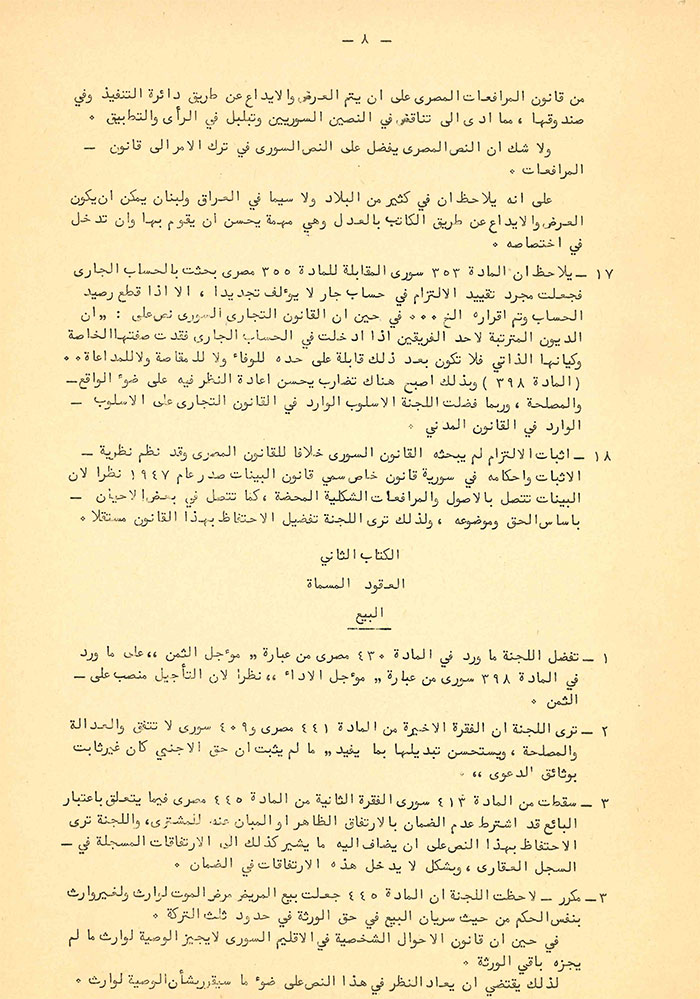 — ٨ —
من قانون المرافعات المصرى على ان يتم العرض والايداع عن طريق دائرة التنفيذ وفي
صندوقها ، مما ادى الى تناقض في النصين السوريين وتبلبل في الرأى والتطبيق .
ولا شك ان النص المصرى يفضل على النص السورى في ترك الامر الى قانون —
المرافعات .
على انه يلاحظ ان في كثير من البلاد ولا سيما في العراق ولبنان يمكن ان يكون
العرض والايداع عن طريق الكاتب بالعدل وهي مهمة يحسن ان يقوم بها وان تدخل
في اختصاصه .
١٧ — يلاحظ ان المادة ٣٥٣ سورى المقابلة للمادة ٣٥٥ مصرى بحثت بالحساب الجارى
فجعلت مجرد تقييد الالتزام في حساب جار لا يؤلف تجديدا ، الا اذا قطع رصيد
الحساب وتم اقراره الخ ... في حين ان القانون التجارى السورى نص على : „ ان
الديون المترتبة لاحد الفريقين اذا ادخلت في الحساب الجارى فقدت صفتها الخاصة
وكيانها الذاتي فلا تكون بعد ذلك قابلة على حده للوفاء ولا للمقاصة ولا للمداعاة ..
(المادة ٣٩٨ ) وبذلك اصبح هناك تضارب يحسن اعادة النظر فيه على ضوء الواقع —
والمصلحة ، وربما فضلت اللجنة الاسلوب الوارد في القانون التجارى على الاسلوب —
الوارد في القانون المدني .
١٨ — اثبات الالتزام لم يبحثه القانون السورى خلافا للقانون المصرى وقد نظم نظرية —
الاثبات واحكامه في سورية قانون خاص سمي قانون البينات صدر عام ١٩٤٧ نظرا لان
البينات تتصل بالاصول والمرافعات الشكلية المحضة ، كما تتصل في بعض الاحيان —
باساس الحق وموضوعه ، ولذلك ترى اللجنة تفضيل الاحتفاظ بهذا القانون مستقلا .
الكتاب الثاني
العقود المسماة
البيع
١ — تفضل اللجنة ما ورد في المادة ٤٣٠ مصرى من عبارة „ مؤجل الثمن ،، على ما ورد
في المادة ٣٩٨ سورى من عبارة „ مؤجل الاداء ،، نظرا لان التأجيل منصب على —
الثمن .
٢ — ترى اللجنة ان الفقرة الاخيرة من المادة ٤٤١ مصرى و ٤٠٩ سورى لا تتفق والعدالة
والمصلحة ، ويستحسن تبديلها بما يفيد „ ما لم يثبت ان حق الاجنبي كان غير ثابت
بوثائق الدعوى ،، .
٣ — سقطت من المادة ٤١٣ سورى الفقرة الثانية من المادة ٤٤٥ مصرى فيما يتعلق باعتبار
البائع قد اشترط عدم الضمان بالارتفاق الظاهر او المبان عنه للمشترى، واللجنة ترى
الاحتفاظ بهذا النص على ان يضاف اليه ما يشير كذلك الى الارتفاقات المسجلة في —
السجل العقارى ، وبشكل لا يدخل هذه الارتفاقات في الضمان .
٣ — مكرر — لاحظت اللجنة ان المادة ٤٤٥ جعلت بيع المريض مرض الموت لوارث ولغير وارث
بنفس الحكم من حيث سريان البيع في حق الورثة في حدود ثلث التركة .
في حين ان قانون الاحوال الشخصية في الاقليم السورى لا يجيز الوصية لوارث ما لم
يجزه باقي الورثة .
لذلك يقتضي ان يعاد النظر في هذا النص على ضوء ما سيقرر بشأن الوصية لوارث .